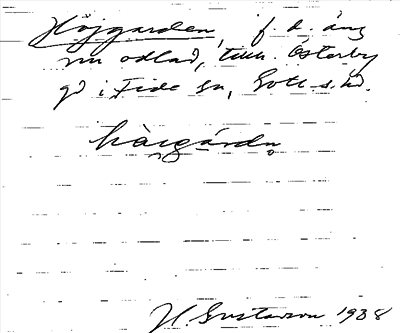 Höjgarden, f. d. äng
nu odlad, till. Österby
gd i Fide sn, Gotl. s. hd.
H. Gustavson 1938